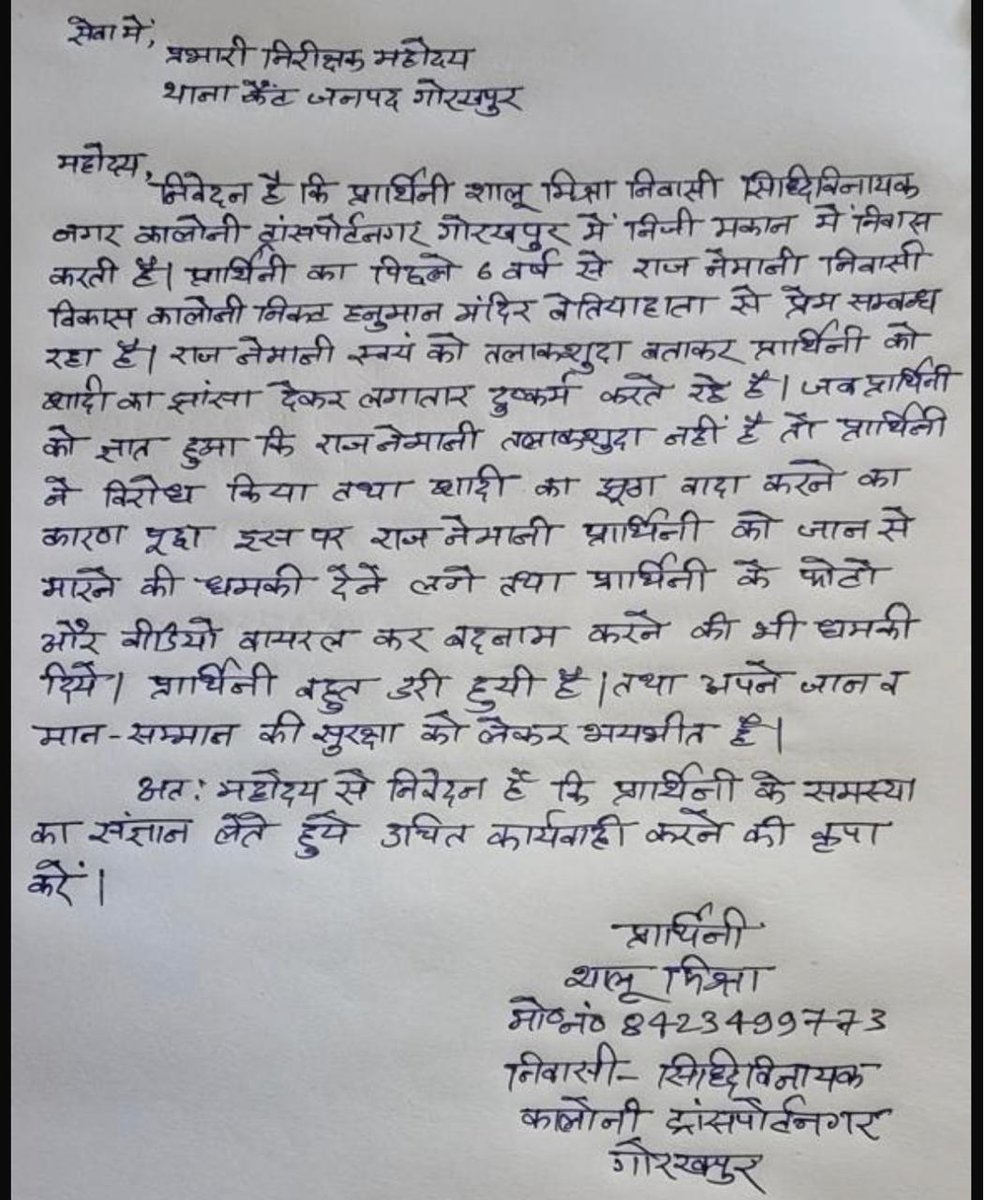 सेवा में,
प्रभारी निरीक्षक महोदय
थाना कैंट जनपद गोरखपुर
महोदय,
निवेदन है कि प्रार्थिनी शालू मिश्रा निवासी सिध्दिविनायक
नगर कालोनी ट्रांसपोर्टनगर गोरखपुर में निजी मकान में निवास
करती है। प्रार्थिनी का पिछले 6 वर्ष से राज नेमानी निवासी
विकास कालोनी निकट हनुमान मंदिर बेतियाहाता से प्रेम सम्बन्ध
रहा है। राज नेमानी स्वयं को तलाकशुदा बताकर प्रार्थिनी को
शादी का झांसा देकर लगातार दुष्कर्म करते रहे है। जब प्रार्थिनी
को ज्ञात हुआ कि राज नेमानी तलाकशुदा नहीं है तो प्रार्थिनी
ने विरोध किया तथा शादी का झूठा वादा करने का
कारण पूछा इस पर राज नेमानी प्रार्थिनी को जान से
मारने की धमकी देने लगे तथा प्रार्थिनी के फोटो
और वीडियो वायरल कर बदनाम करने की भी धमकी
दिये। प्रार्थिनी बहुत डरी हुयी है। तथा अपने जान व
मान-सम्मान की सुरक्षा को लेकर भयभीत है।
अत: महोदय से निवेदन है कि प्रार्थिनी के समस्या
का संज्ञान लेते हुये उचित कार्यवाही करने की कृपा
करें।
प्रार्थिनी
शालू मिश्रा
मो०नं० 8423499773
निवासी- सिध्दिविनायक
कालोनी ट्रांसपोर्टनगर
गोरखपुर